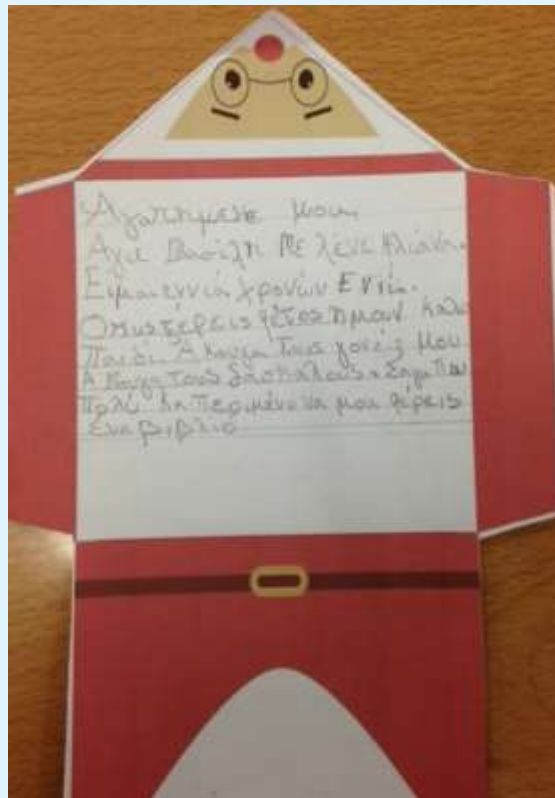 Αγαπημενε μου
Αγιε Βασίλη Με λένε Ηλιάνα.
Ειμαι εννιά χρονών Εννία.
Οπωςξέρεις φέτος ημουν καλο
Παιδί. Α κουγα τους γονείς μου
Α κουγα τους δασκαλους
πολύ να περιμένω να μου φέρεις
ενα βιβλιο